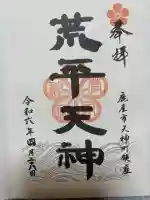 奉拝
鹿屋市天神町鎮座
荒平天神
令和六年四月二六日